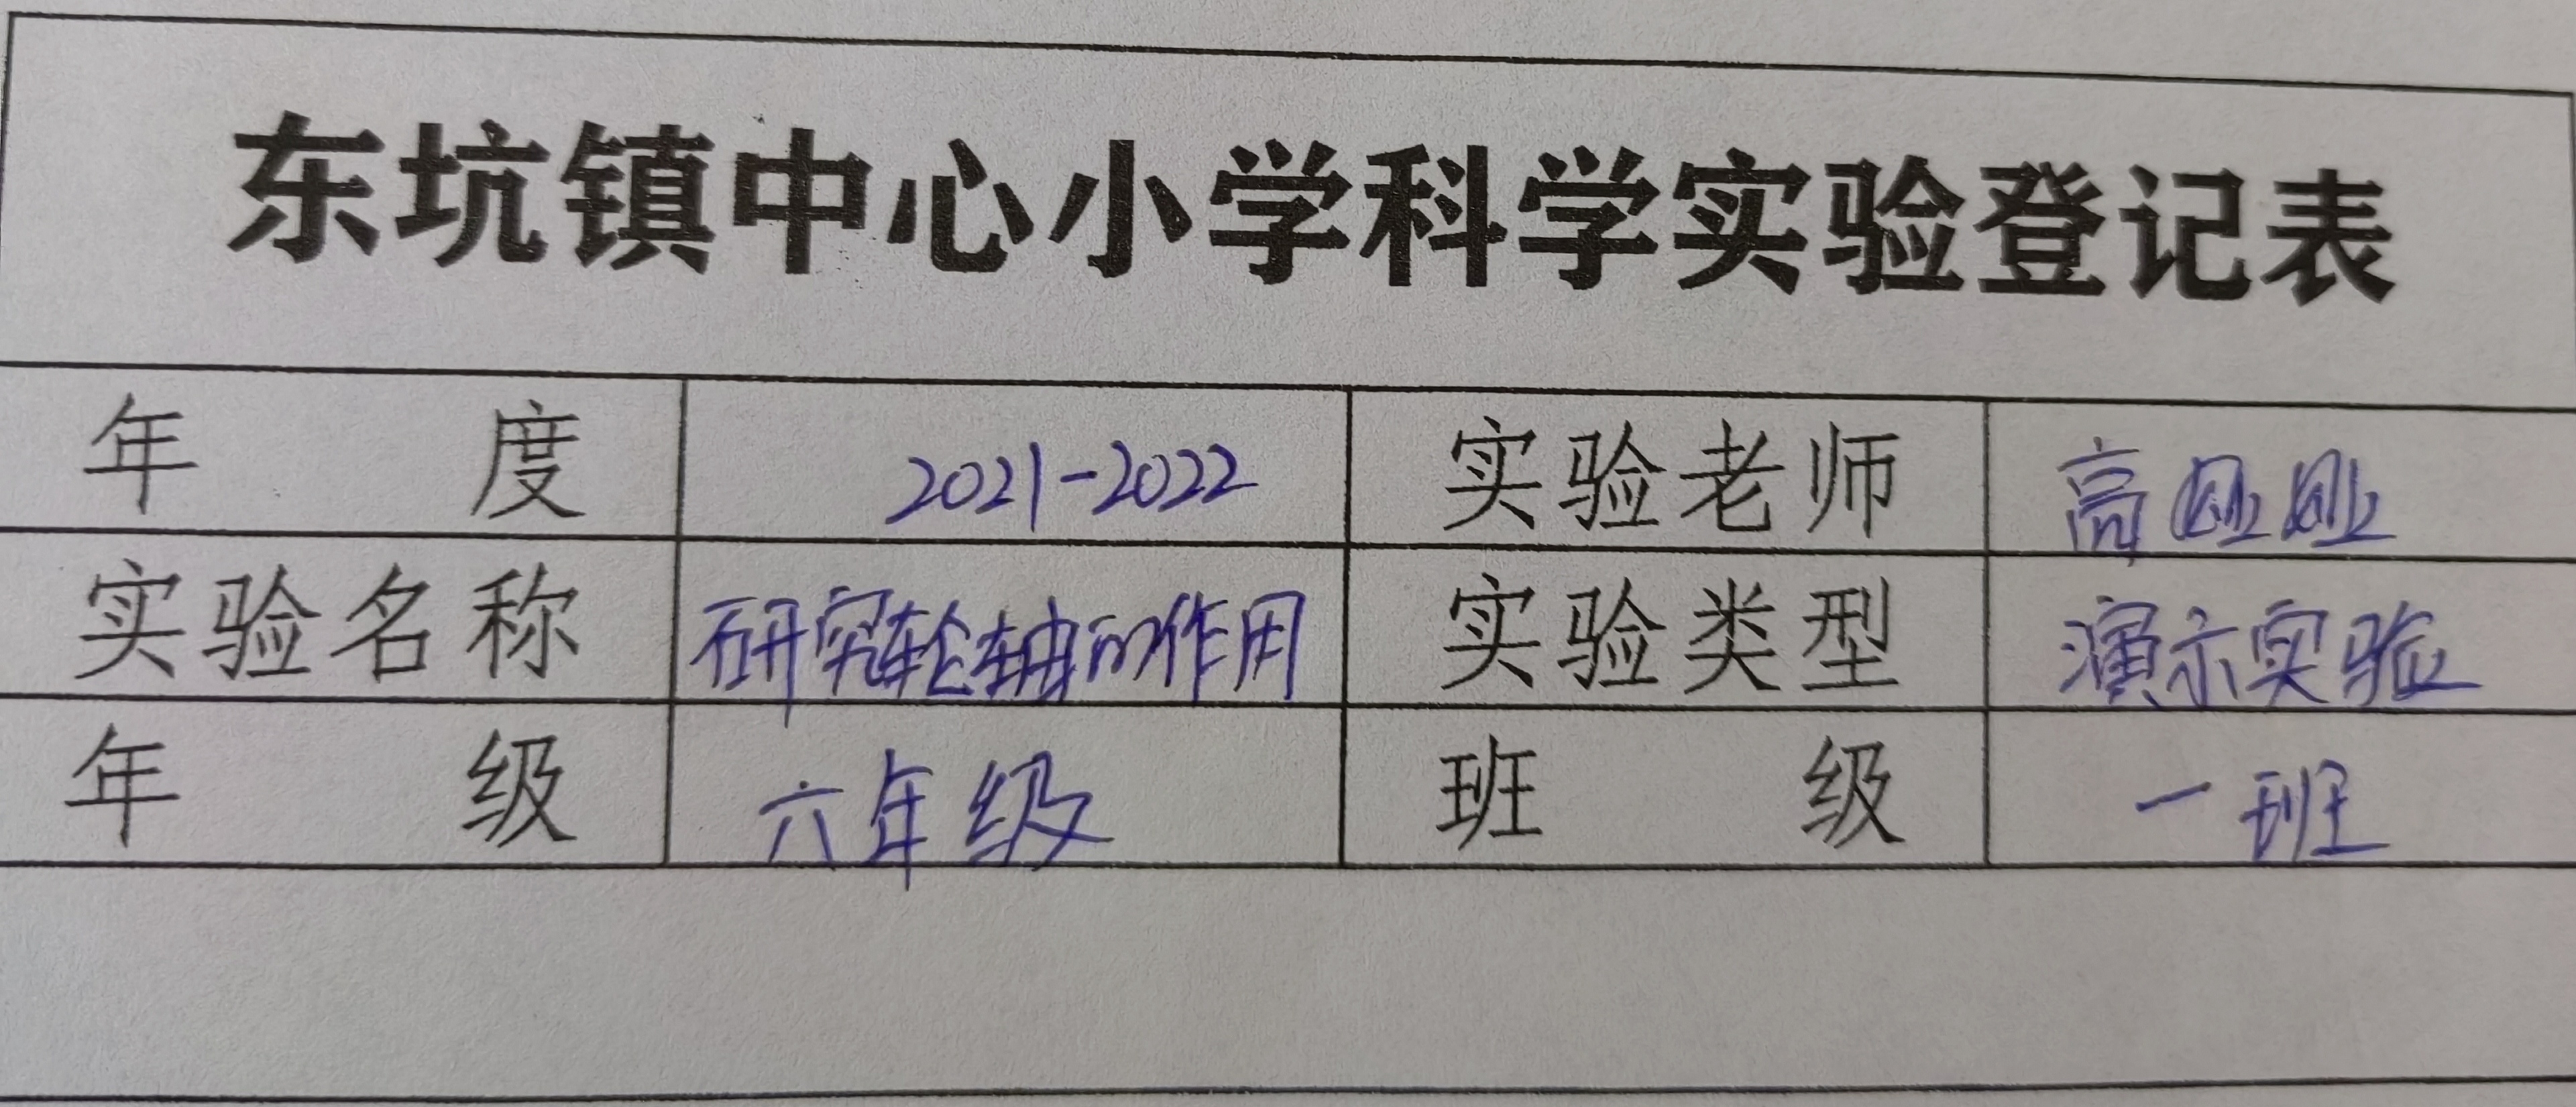 东坑镇中心小学科学实验登记表
年度 2021-2022 实验老师 高
实验名称 研究轮轴的作用 实验类型 演示实验
年级 六年级 班级 一班